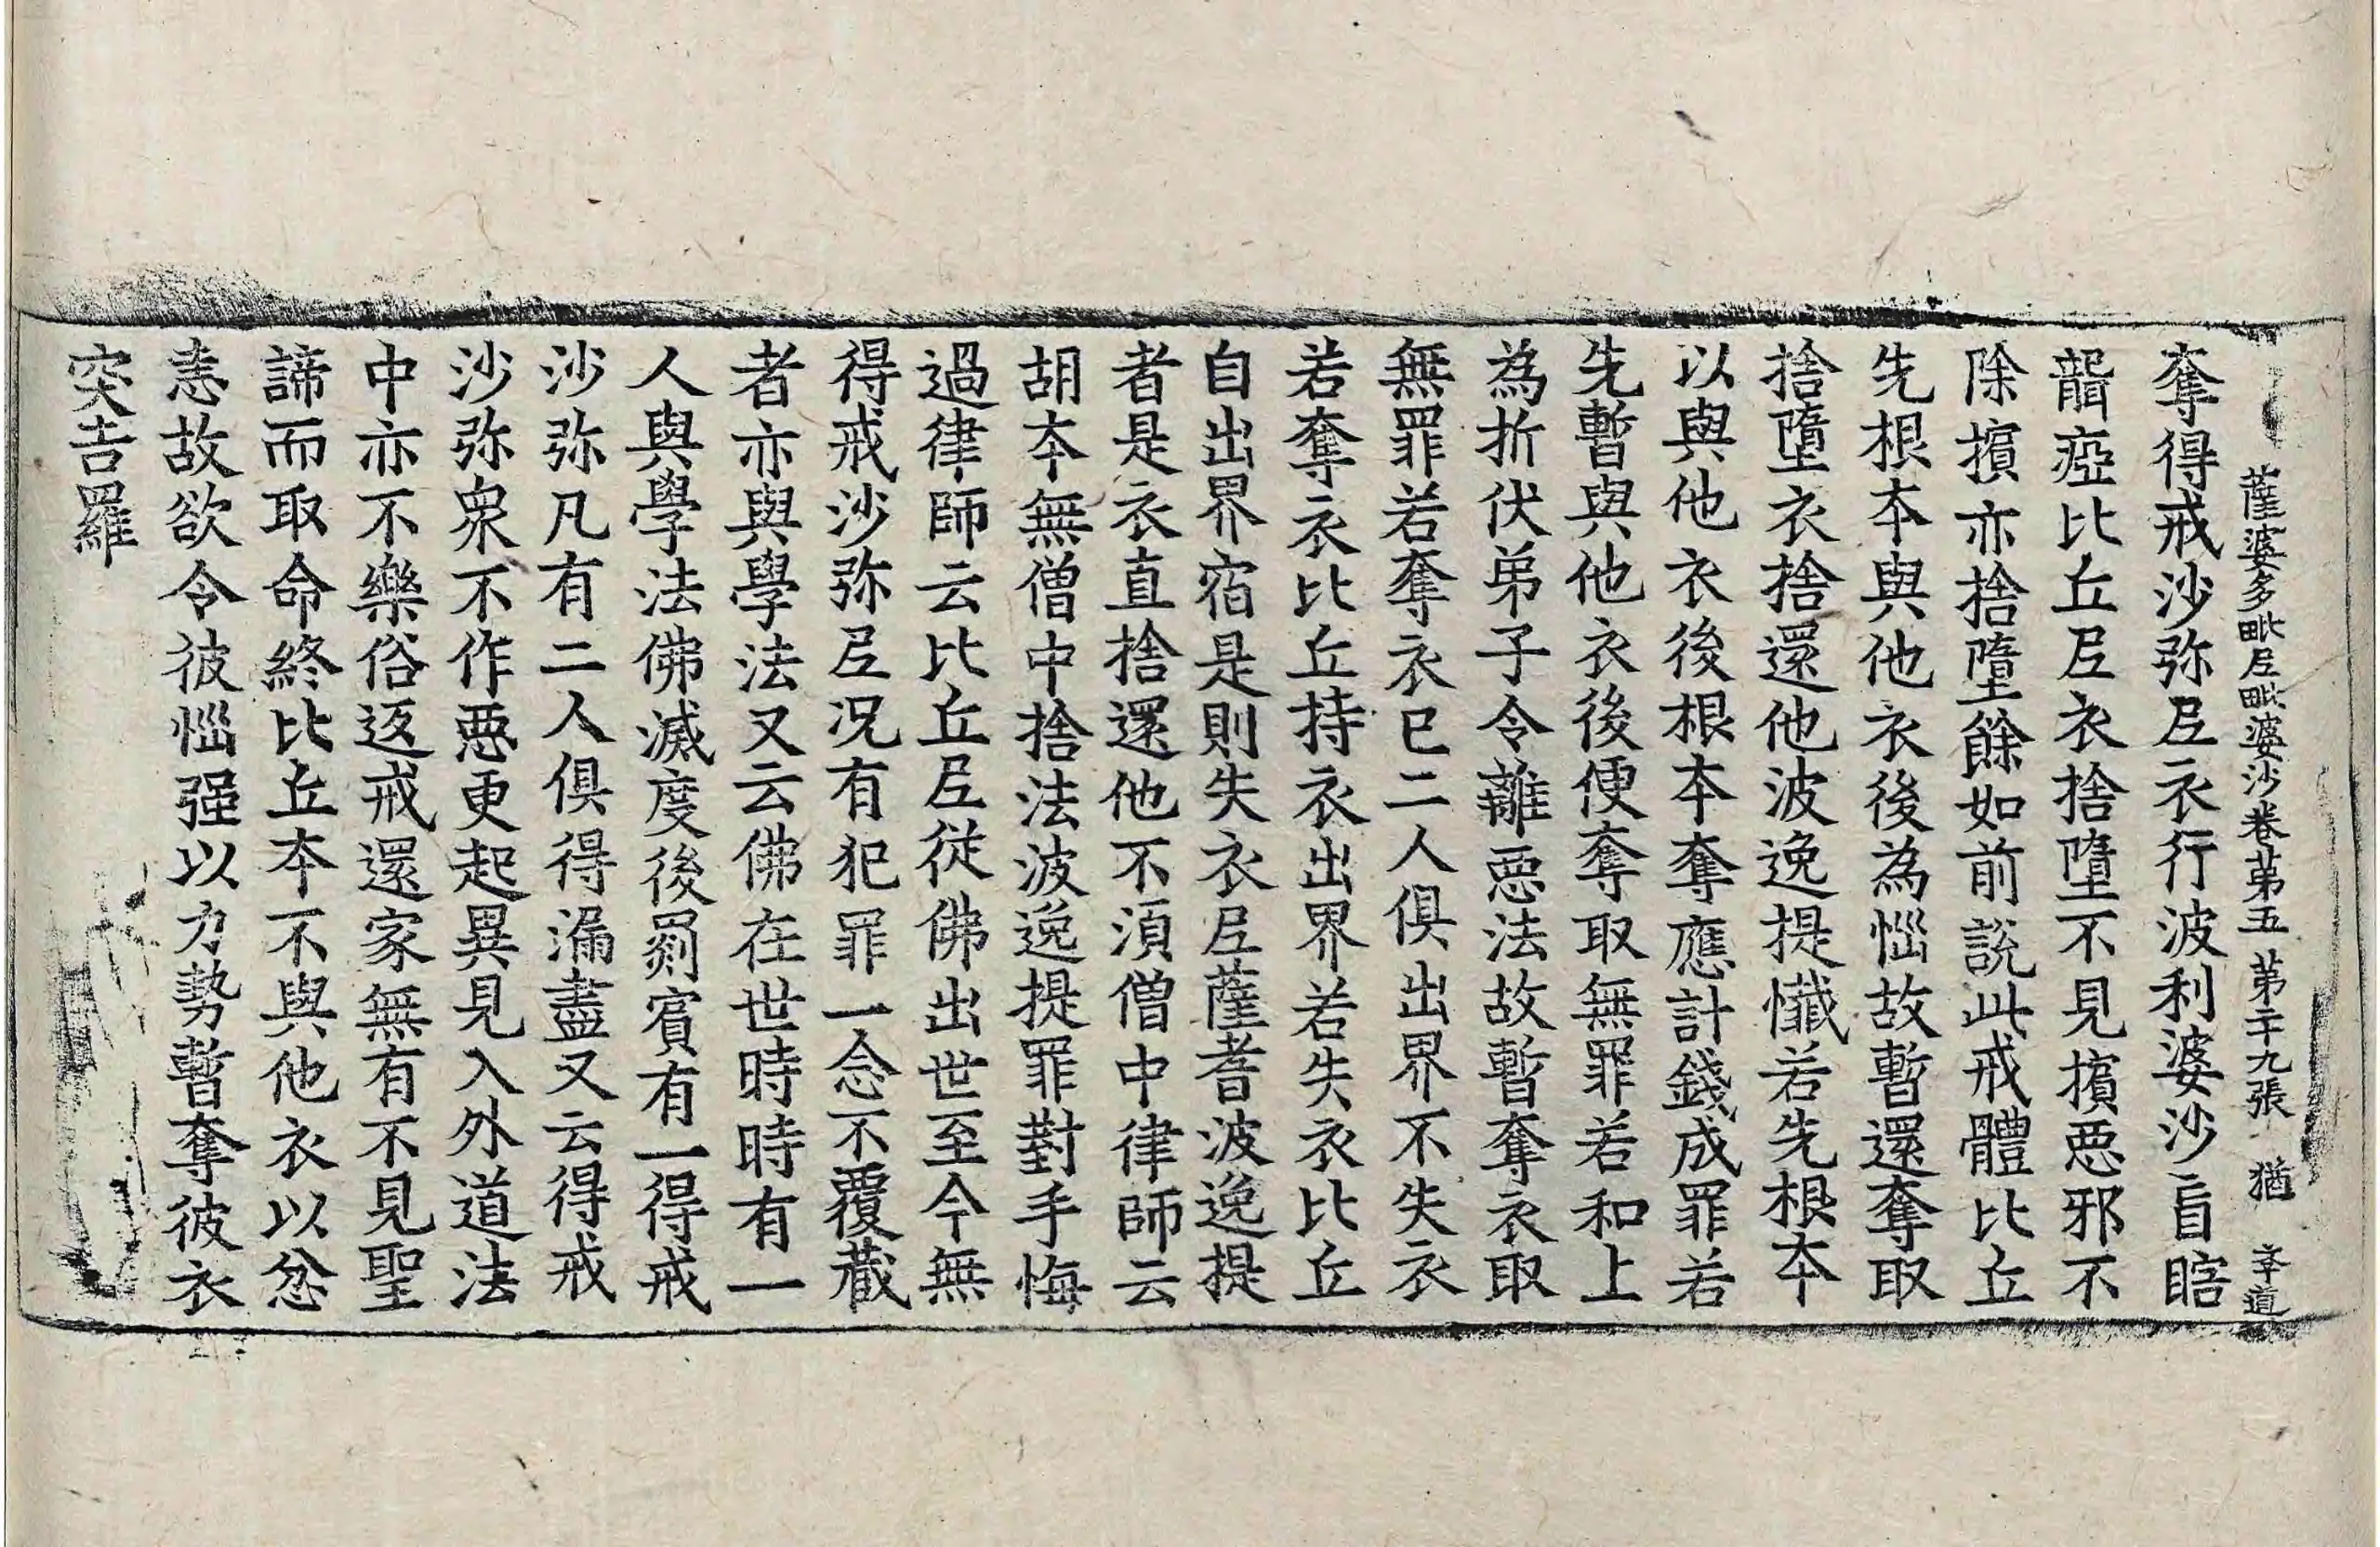 薩婆多毗尼毗婆沙卷第五 第二十九張 猶 李道
奪得戒沙弥尼衣行波利婆沙盲瞎
聾瘂比丘尼衣捨墮不見擯惡邪不
除擯亦捨墮餘如前說此戒體比丘
先根本與他衣後為惱故暫還奪取
捨墮衣捨還他波逸提懺若先根本
以與他衣後根本奪應計錢成罪若
先暫與他衣後便奪取無罪若和上
為折伏弟子令離惡法故暫奪衣取
無罪若奪衣已二人俱出界不失衣
若奪衣比丘持衣出界若失衣比丘
自出界宿是則失衣尼薩耆波逸提
者是衣直捨還他不湏僧中律師云
胡本無僧中捨法波逸提罪對手悔
過律師云比丘尼從佛出世至今無
得戒沙弥尼况有犯罪一念不覆藏
者亦與學法又云佛在世時時有一
人與學法佛滅度後罽賓有一得戒
沙弥凡有二人俱得漏盡又云得戒
沙弥衆不作惡更起異見入外道法
中亦不樂俗返戒還家無有不見聖
諦而取命終比丘本不與他衣以忿
恚故欲令彼惱强以力勢暫奪彼衣
突吉羅